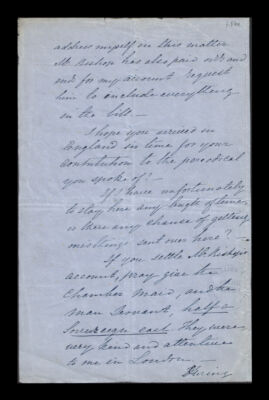 address myself on this matter
Mr. Rishop has also paid odds and
ends for my account request
him to include everything
in the bill. —
I hope you arrived in
England in time for your
contribution to the periodical
you spoke of? —
If I have unfortunately
to stay here any length of time,
is there any chance of getting
sent over here? —
If you settle Mr
account, pray give the
Chamber Maid, and the
man Servant, half a
Sovereign each they were
very kind and attentive
to me in London. —